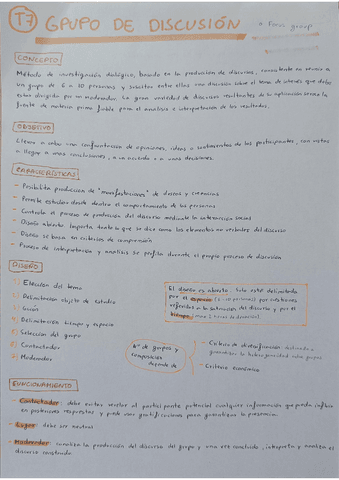 T7 GRUPO DE DISCUSIÓN
* Focus group
CONCEPTO
Método de investigación dialógico, basado en la producción de discursos, consistente en reunir a
un grupo de 6 a 10 personas y suscitar entre ellas una discusión sobre el tema de interés que debe
estar dirigida por un moderador. La gran variedad de discursos resultantes de su aplicación serán la
fuente de materia prima fiable para el análisis e interpretación de los resultados.
OBJETIVO
Llevar a cabo una confrontación de opiniones, ideas o sentimientos de los participantes, con vistas
a llegar a unas conclusiones, a un acuerdo o a unas decisiones.
CARACTERÍSTICAS
- Posibilita producción de "manifestaciones" de deseos y creencias
- Permite estudiar desde dentro el comportamiento de las personas
- Controla el proceso de producción del discurso mediante la interacción social
- Diseño abierto. Importa tanto lo que se dice como los elementos no verbales del discurso
- Diseño se basa en criterios de comprensión
- Proceso de interpretación y análisis se perfila durante el propio proceso de discusión
DISEÑO
1) Elección del tema
2) Delimitación objeto de estudio
3) Guión
4) Delimitación tiempo y espacio
5) Selección del grupo
6) Contactador
7) Moderador
El diseño es abierto. Solo está delimitado
por el espacio (6-10 personas) por cuestiones
referidas a la saturación del discurso y por el
tiempo
Nº de grupos y
composición
depende de
- Criterio de diversificación
- Criterio económico
FUNCIONAMIENTO
- Contactador: debe evitar revelar al participante potencial cualquier información que pueda influir
en posteriores respuestas y puede usar gratificaciones para garantizar la presencia.
- Lugar: debe ser neutral
- Moderador: canaliza la producción del discurso del grupo y una vez concluido, interpreta y analiza el
discurso construido.